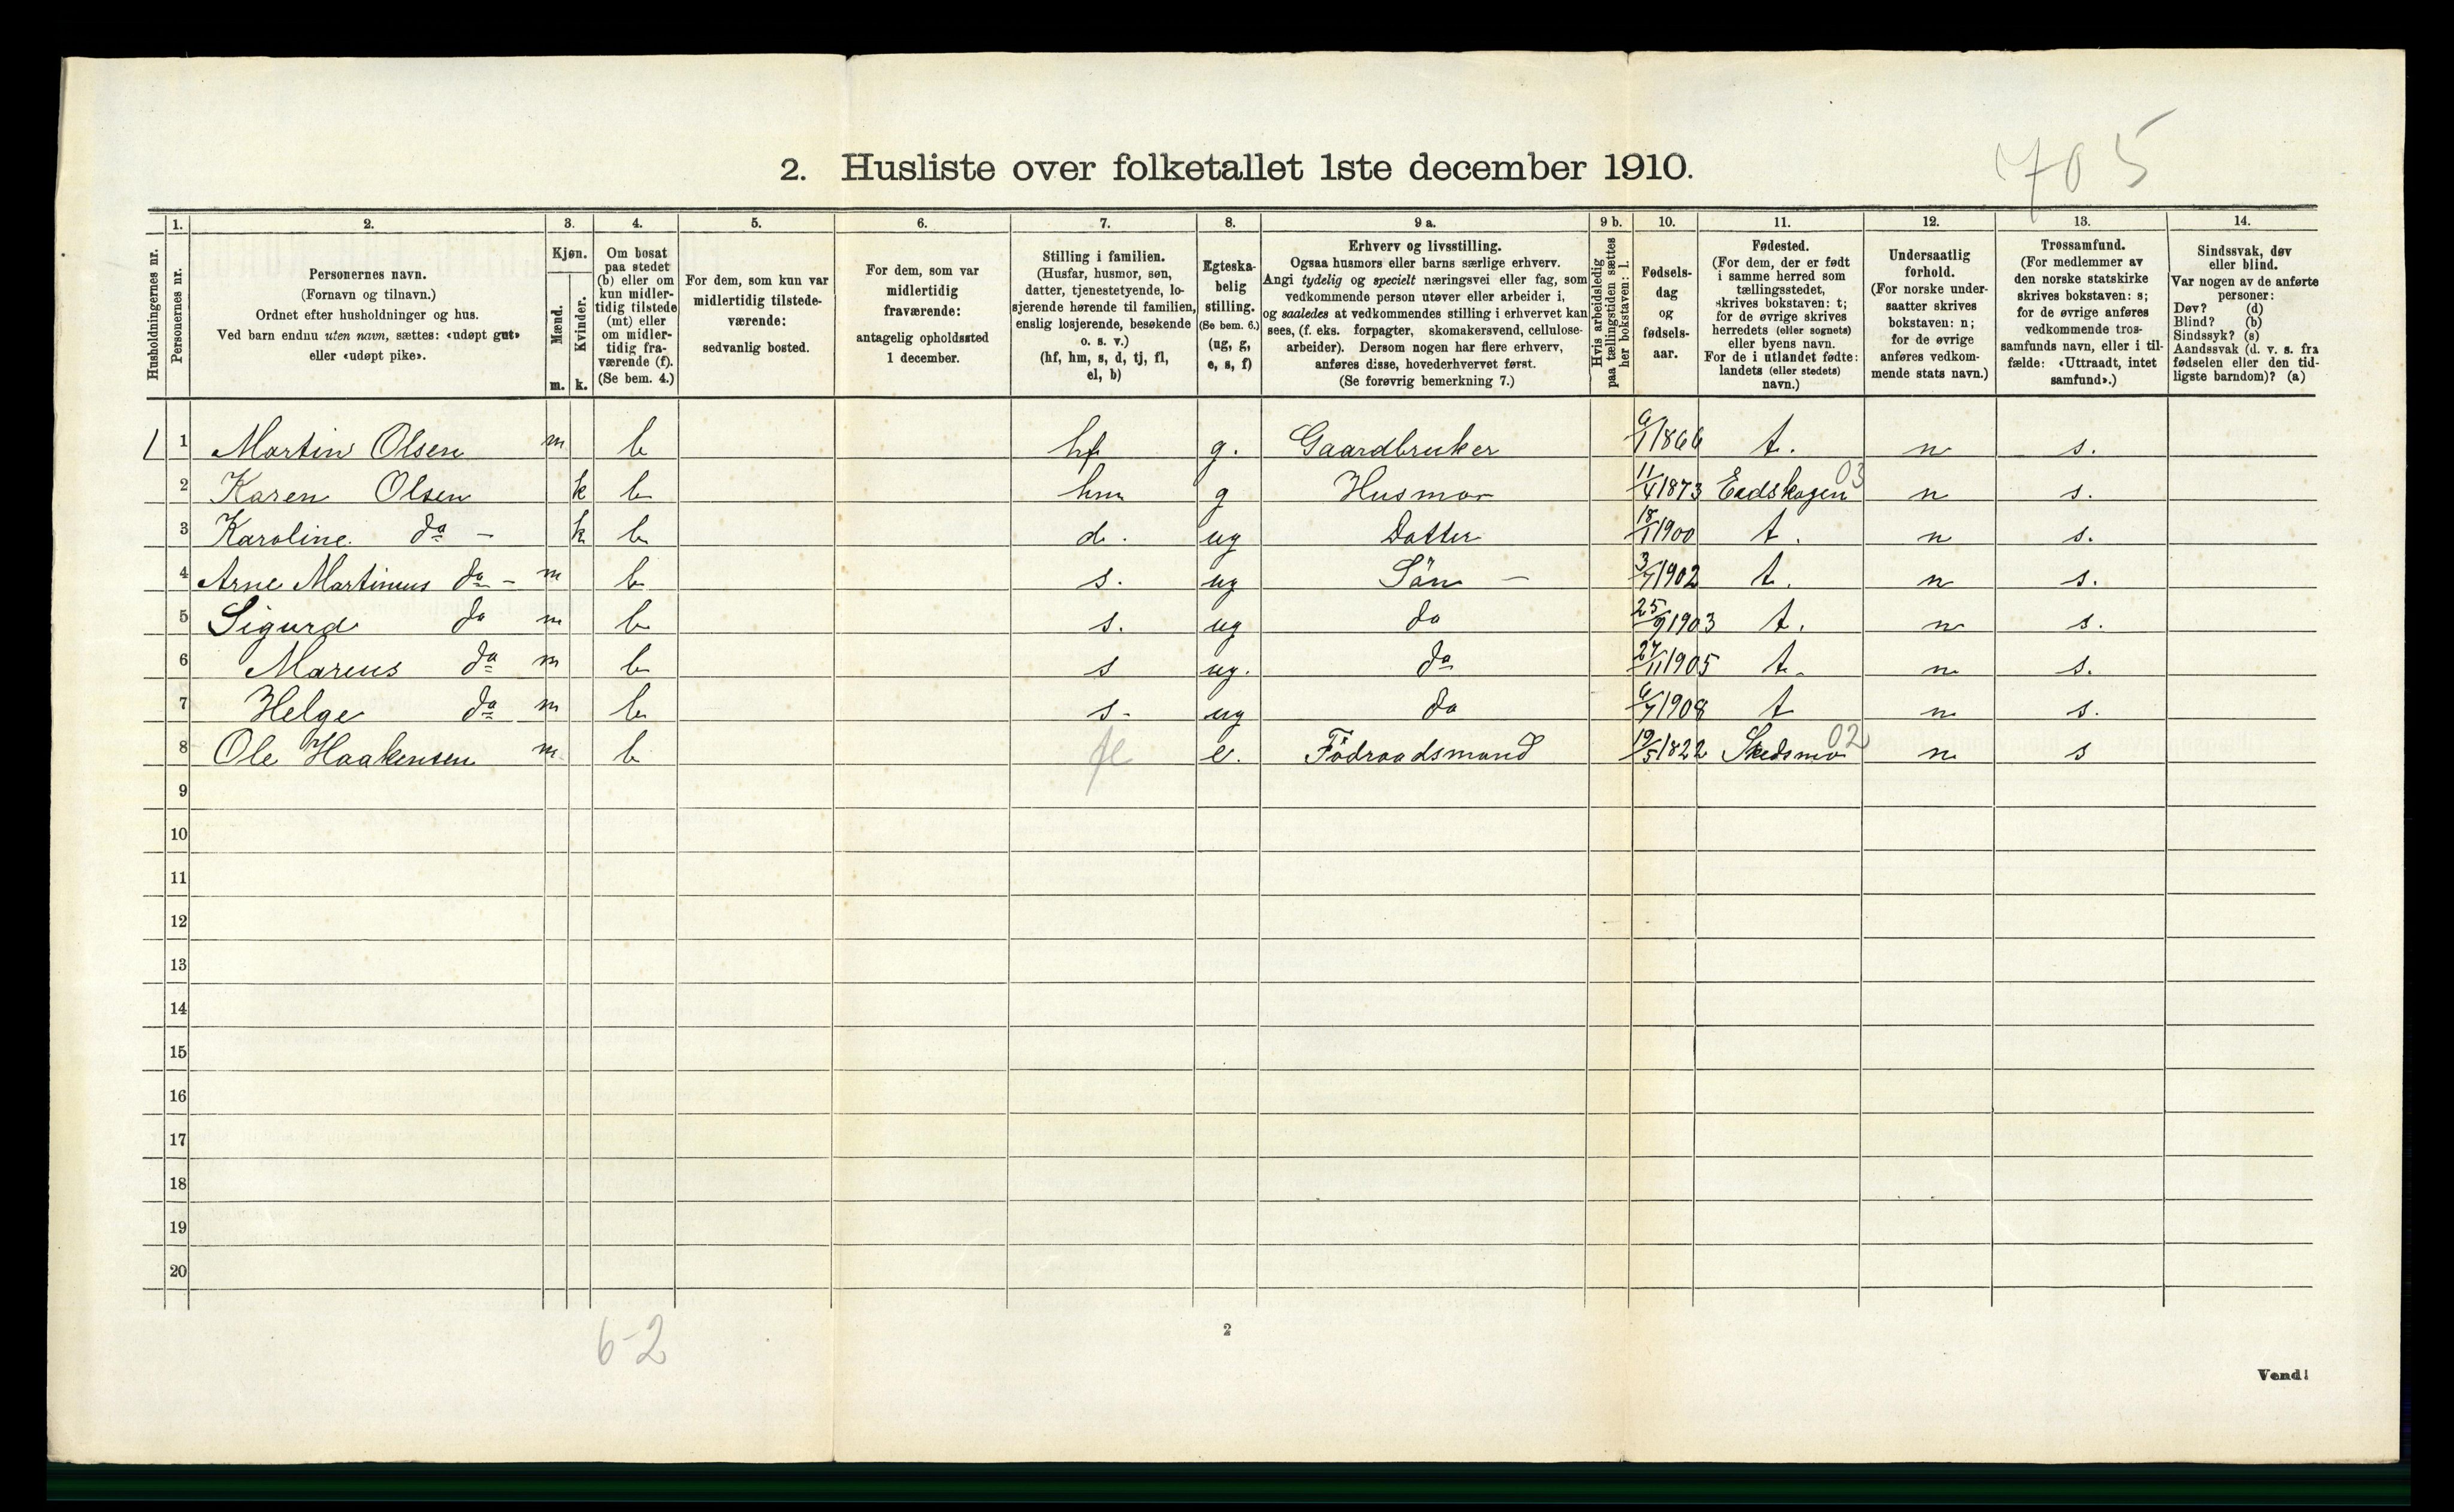 705
2. Husliste over folketallet 1ste december 1910.
Husholdningernes nr.
1.
Personernes nr.
2.
Personernes navn.
(Fornavn og tilnavn.)
Ordnet efter husholdninger og hus.
Ved barn endnu uten navn, sættes: «udøpt gut»
eller «udøpt pike».
3.
Kjøn.
Mænd.
Kvinder.
m. k.
4.
Om bosat
paa stedet
(b) eller om
kun midler-
tidig tilstede
(mt) eller
om midler-
tidig fra-
værende (f).
(Se bem. 4.)
5.
For dem, som kun var
midlertidig tilstede-
værende:
sedvanlig bosted.
6.
For dem, som var
midlertidig
fraværende:
antagelig opholdssted
1 december.
7.
Stilling i familien.
(Husfar, husmor, søn,
datter, tjenestetyende, lo-
sjerende hørende til familien,
enslig losjerende, besøkende
o. s. v.)
(hf, hm, s, d, tj, fl,
el, b)
8.
Egteska-
belig
stilling.
(Se bem. 6.)
(ug, g,
e, s, f)
9 a.
Erhverv og livsstilling.
Ogsaa husmors eller barns særlige erhverv.
Angi tydelig og specielt næringsvei eller fag, som
vedkommende person utøver eller arbeider i,
og saaledes at vedkommendes stilling i erhvervet kan
sees, (f. eks. forpagter, skomakersvend, cellulose-
arbeider). Dersom nogen har flere erhverv,
anføres disse, hovederhvervet først.
(Se forøvrig bemerkning 7.)
9 b.
Hvis arbeidsledig
paa tællingstiden sættes
her bokstaven: l.
10.
Fødsels-
dag
og
fødsels-
aar.
11.
Fødested.
(For dem, der er født
i samme herred som
tællingsstedet,
skrives bokstaven: t;
for de øvrige skrives
herredets (eller sognets)
eller byens navn.
For de i utlandet fødte:
landets (eller stedets)
navn.)
12.
Undersaatlig
forhold.
(For norske under-
saatter skrives
bokstaven: n;
for de øvrige
anføres vedkom-
mende stats navn.)
13.
Trossamfund.
(For medlemmer av
den norske statskirke
skrives bokstaven: s;
for de øvrige anføres
vedkommende tros-
samfunds navn, eller i til-
fælde: «Uttraadt, intet
samfund».)
14.
Sindssvak, døv
eller blind.
Var nogen av de anførte
personer:
Døv? (d)
Blind? (b)
Sindssyk? (s)
Aandssvak (d. v. s. fra
fødselen eller den tid-
ligste barndom)? (a)
1 1 Martin Olsen m b hf g. Gaardbruker 6/1 1866 t. n s.
2 Karen Olsen k b hm g Husmor 11/4 1873 Eidskogen 03 n s.
3 Karoline do - k b d. ug Datter 18/1 1900 t. n s.
4 Arne Martinius do - m b s. ug Sön - 3/7 1902 t. n s.
5 Sigurd do m b s. ug do 25/9 1903 t. n s.
6 Marius do m b s ug. do 27/11 1905 t. n s.
7 Helge do m b s. ug do 6/7 1908 t n s.
8 Ole Haakensen m b fl e. Födraadsmand 19/5 1822 Skedsmo 02 n s
9
10
11
12
13
14
15
16
17
18
19
20
6-2
2
Vend!